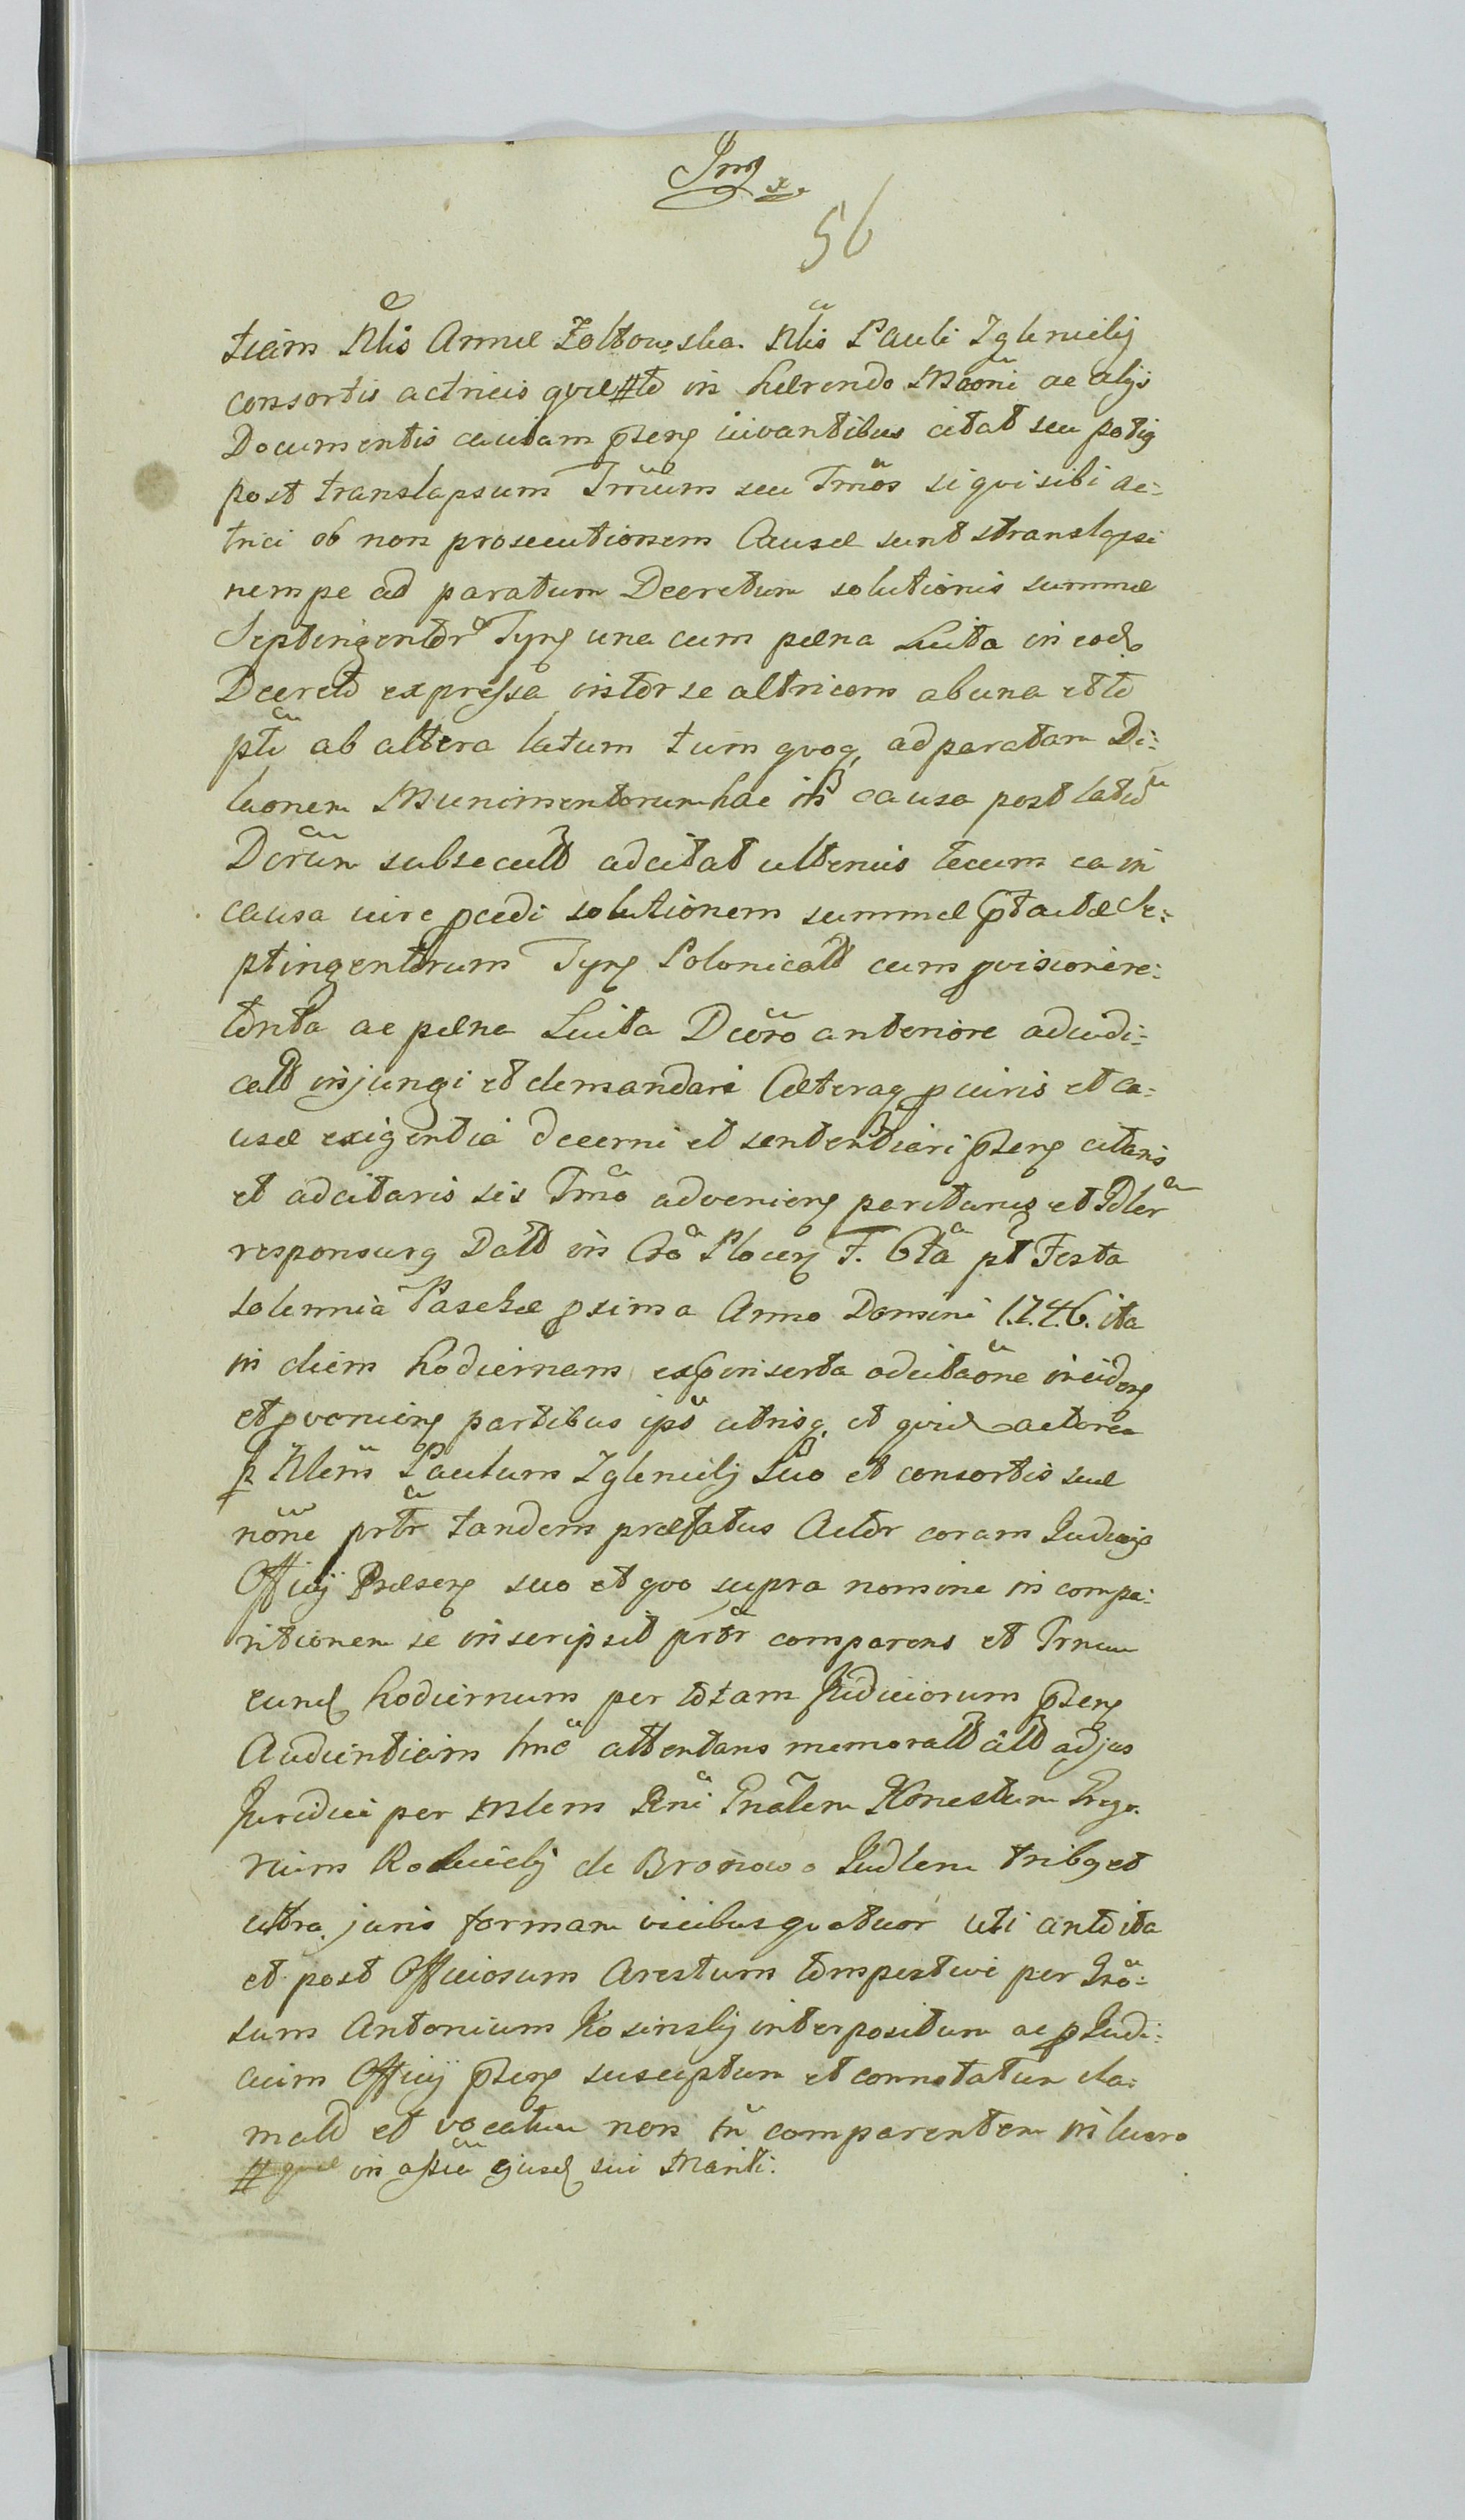 56
tiam Nlis Annæ Żołtowska Nlis Pauli Zglenicky
consortis actricis quæ # te in hærendo Maõni ac alys
Documentis causam pseng iuvantibus citat seu potig
post translapsum Tmũm seu Tmõs si qui sibi ac:
trici ob non prosecutionem Causæ sunt translapsi
nempe ad paratum Decretum solutionis summæ
Septingentor Tynf una cum pæna Luita in eod
Decreto expressa inter se actricem ab una et te
pte ab altera latum tum quoq, ad paratam Di:
laonem Munimentorum hac in causa post latũ
Dcrũm subsecutã adcitat ulterius tecum ea in
causa iure pcedi solutionem summæ ptactæ Se:
ptingentorum Tynf Polonicalt cum pvisione re:
tenta ac pæna Luita Dcrõ anteriore adiudi:
catt injungi et demandari Cæteraq p iuris et ca:
usæ exigentia decerni et sententiari pseng citaris
et adcitaris sis Tmõ adveniens pariturus et Jdlr
responsurg Datt in Crõ Plocen F. 6tã pt Festa
solennia Paschæ pxima Anno Domini 1.7.4.6. ita
in diem hodiernam ex inserta adcitaõne incideng
et pvenieng partibus ips utrisq, et quid actorea
p Nlem Paulum Zglenicky suo et consortis suæ
nõne prtr tandem præfatus Actor coram Judicijs
Officij Præseng suo et quo supra nomine in compa:
ritionem se inscripsit prtr comparens et Trmum
eund hodiernum per totam Judiciorum pseng
Audientiam hnc attentans memoratt citt adjus
Juridici per Mlem Rni Gnalem Honestum Grego
rium Rościcky de Bronowo Judlem tribg et
ultra juris formam vicibus quatuor uti ant ita
et post Officiosum Arestum tempestive per Gnõ:
sum Antonium Kosinsky interpositum ac p Judi:
cium Officij pseng susceptum et connotatum cla:
matt et vocatum non tñ comparentem in lucro
# in assia ejusd sui Mariti.